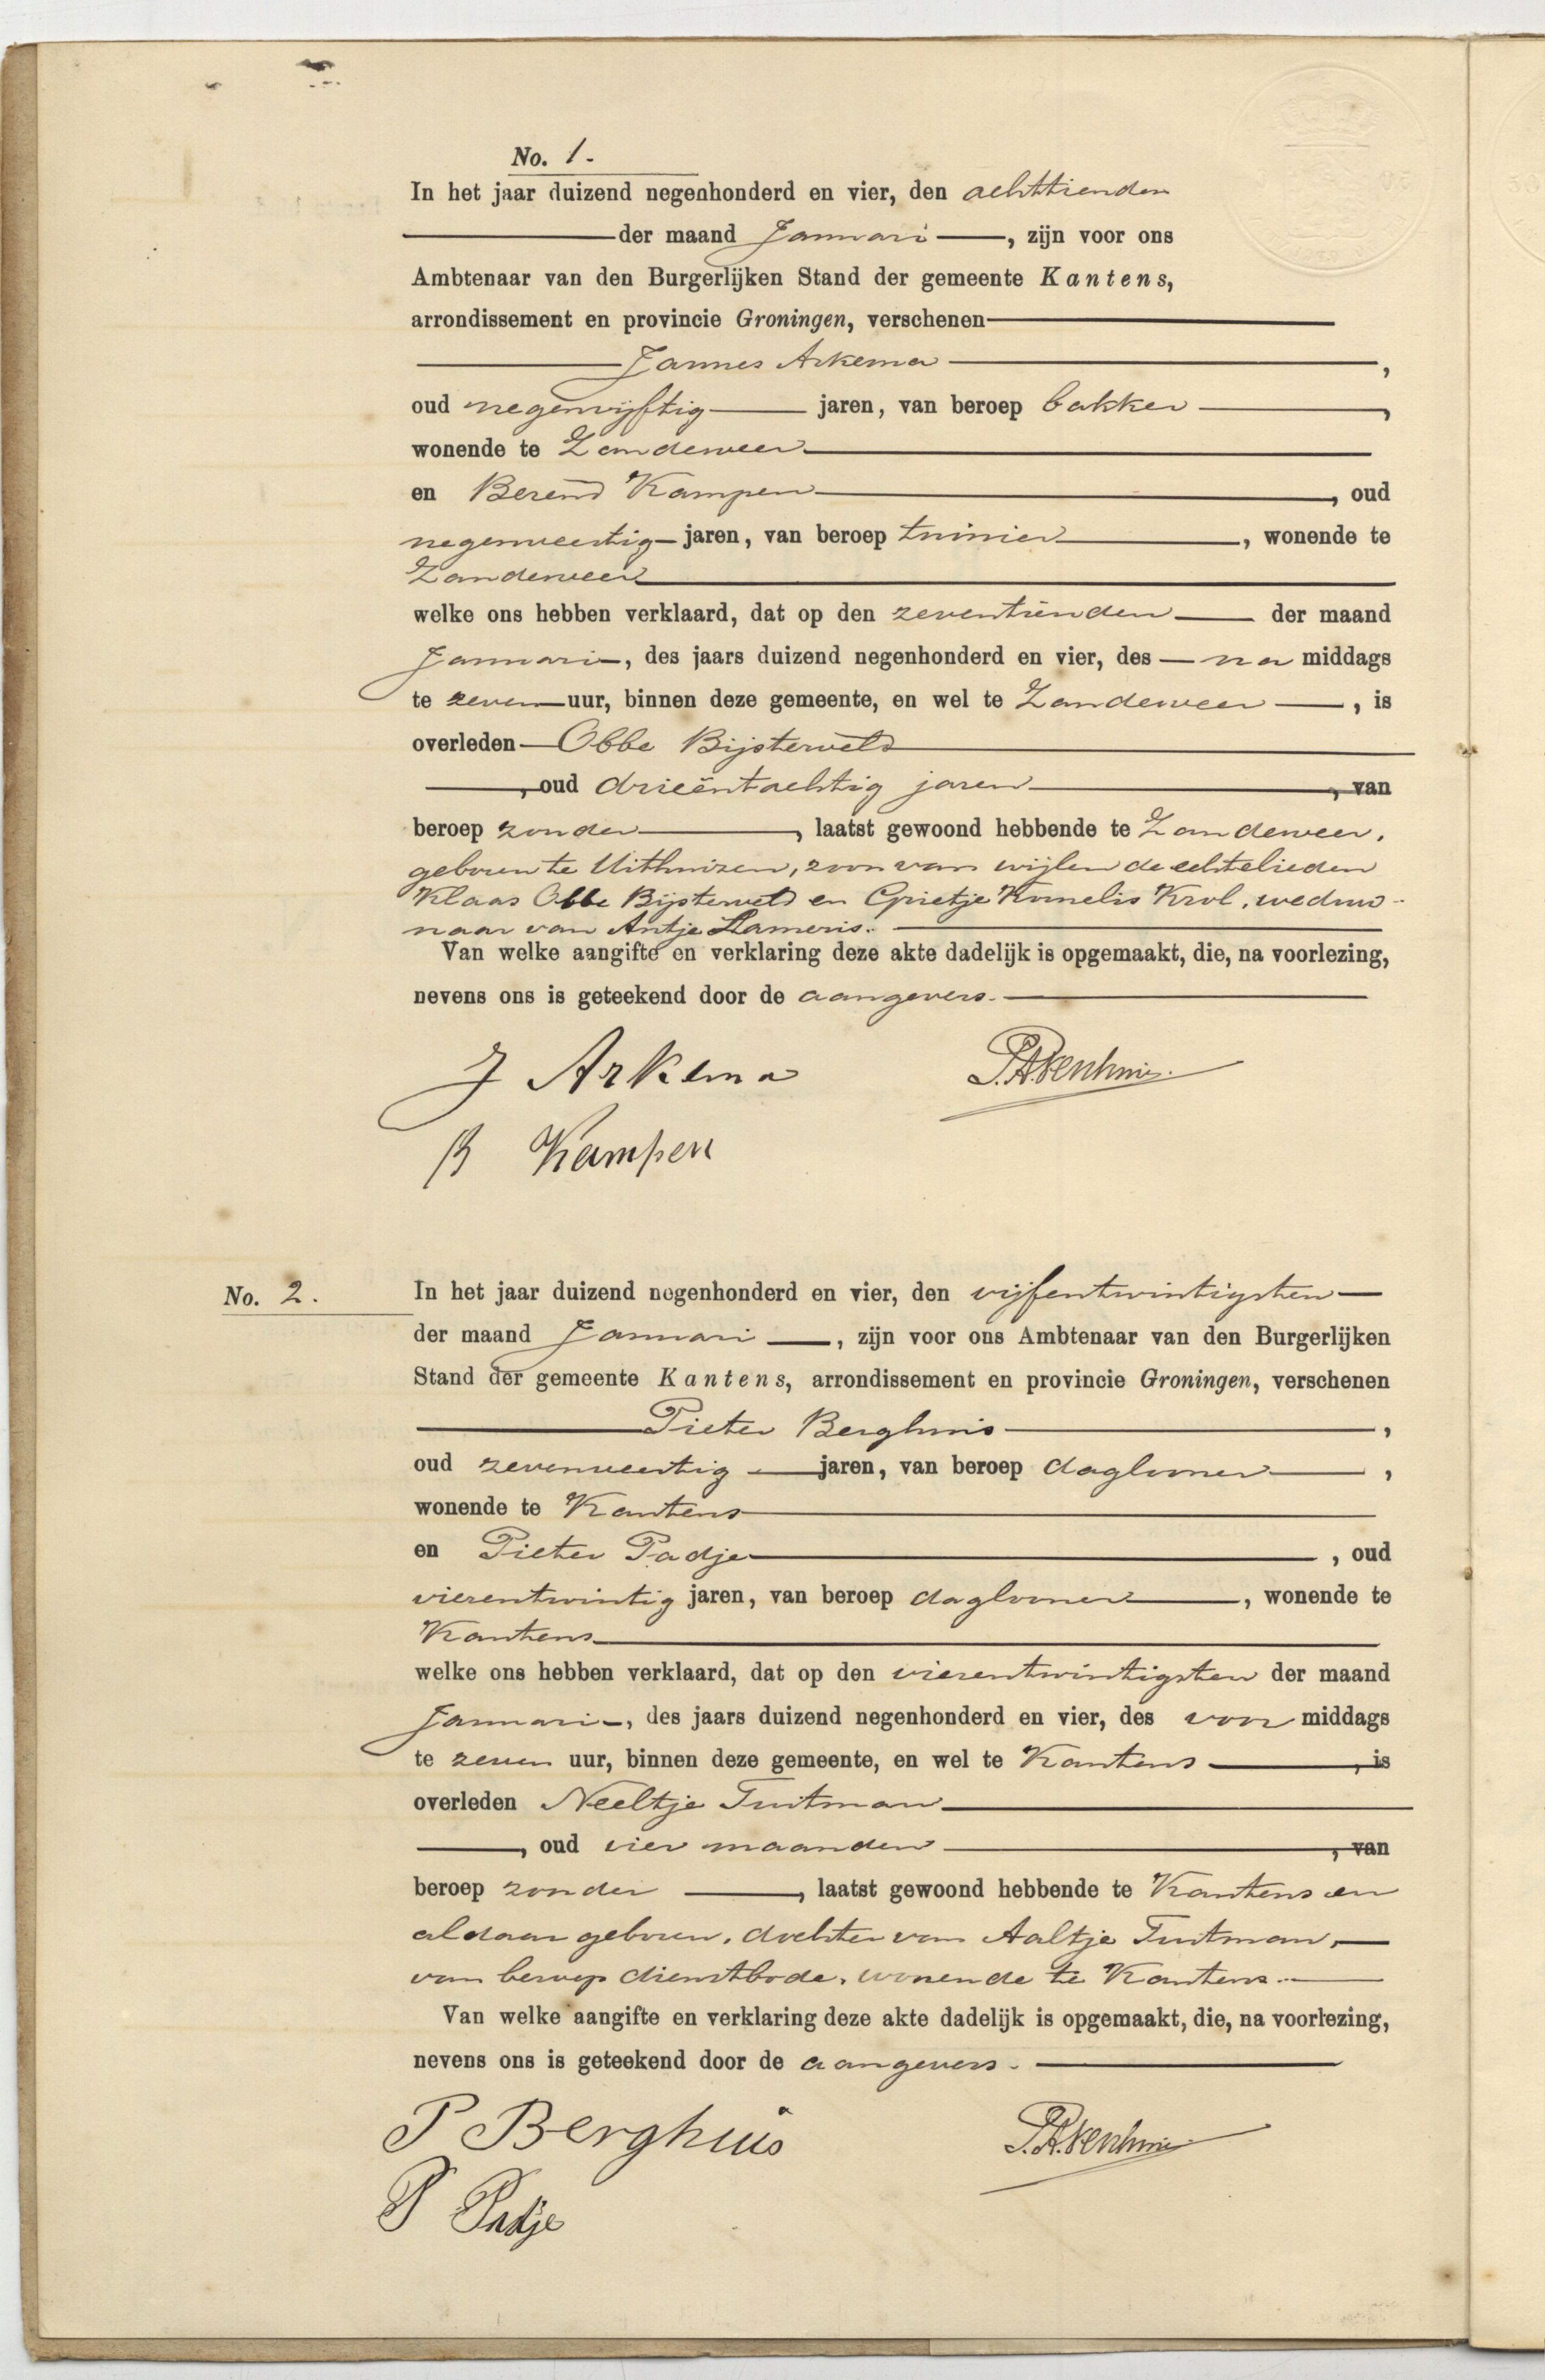 No. 1.
In het jaar duizend negenhonderd en vier, den achttienden
der maand Januari, zijn voor ons
Ambtenaar van den Burgerlijken Stand der gemeente Kantens,
arrondissement en provincie Groningen, verschenen
Jannes Arkema,
oud negenvijftig jaren, van beroep bakker,
wonende te Zandeweer
en Berend Kampen, oud
negenveertig jaren, van beroep tuinier, wonende te
Zandeweer
welke ons hebben verklaard, dat op den zeventienden der maand
Januari, des jaars duizend negenhonderd en vier, des na middags
te zeven uur, binnen deze gemeente, en wel te Zandeweer, is
overleden Obbe Bijsterveld
, oud drieëntachtig jaren, van
beroep zonder, laatst gewoond hebbende te Zandeweer,
geboren te Uithuizen, zoon van wijlen de echtelieden
Klaas Obbe Bijsterveld en Grietje Kornelis Krol, weduw-
naar van Antje Lameris.
Van welke aangifte en verklaring deze akte dadelijk is opgemaakt, die, na voorlezing,
nevens ons is geteekend door de aangevers.
J Arkema
B Kampen
No. 2.
In het jaar duizend negenhonderd en vier, den vijfentwintigsten
der maand Januari, zijn voor ons Ambtenaar van den Burgerlijken
Stand der gemeente Kantens, arrondissement en provincie Groningen, verschenen
Pieter Berghuis,
oud zevenveertig jaren, van beroep daglooner,
wonende te Kantens
en Pieter Padje, oud
vierentwintig jaren, van beroep daglooner, wonende te
Kantens
welke ons hebben verklaard, dat op den vierentwintigsten der maand
Januari, des jaars duizend negenhonderd en vier, des voor middags
te zeven uur, binnen deze gemeente, en wel te Kantens, is
overleden Neeltje Tuitman
, oud vier maanden, van
beroep zonder, laatst gewoond hebbende te Kantens en
aldaar geboren, dochter van Aaltje Tuitman,
van beroep dienstbode, wonende te Kantens.
Van welke aangifte en verklaring deze akte dadelijk is opgemaakt, die, na voorlezing,
nevens ons is geteekend door de aangevers.
P Berghuis
P Padje